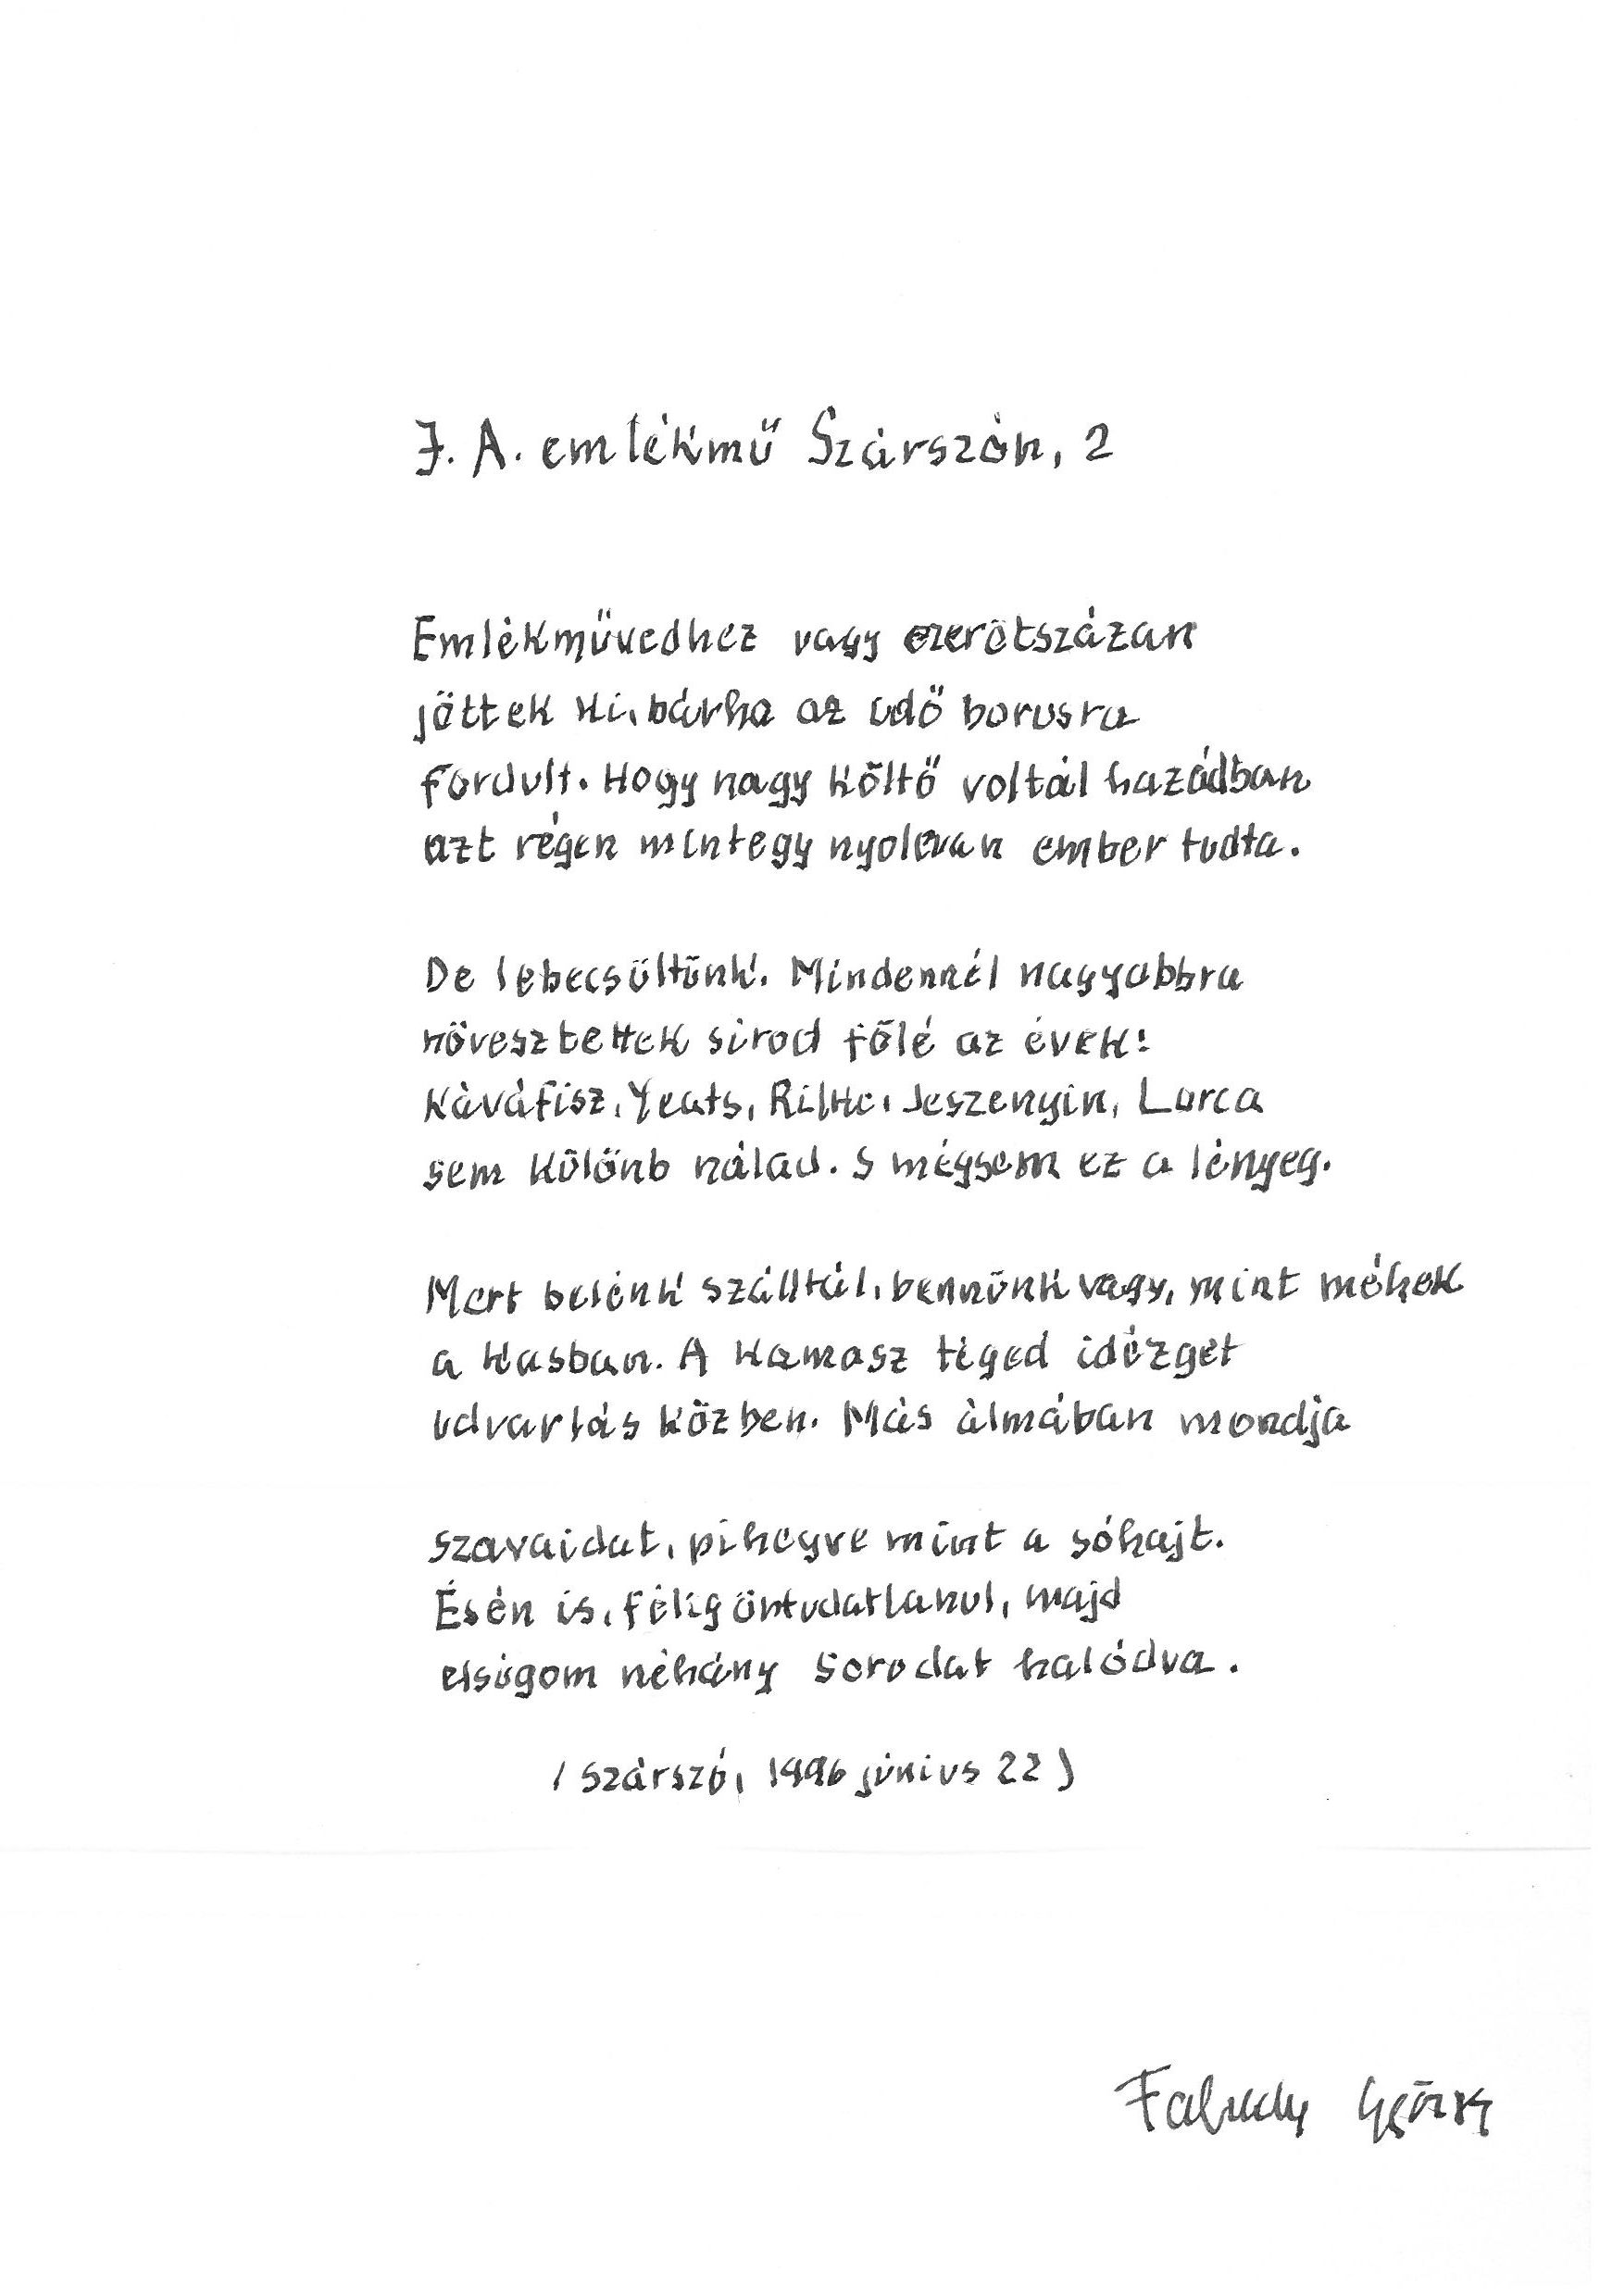 J. A. emlékmű Szárszón, 2
Emlékművedhez vagy ezerötszázan
jöttek ki, bárha az idő borusra
fordult. Hogy nagy költő voltál hazádban
azt régen mintegy nyolcvan ember tudta.
De lebecsültünk. Mindennél nagyobbra
növesztettek sirod fölé az évek:
Kàváfisz, Yeats, Rilke, Jeszenyin, Lorca
sem külőnb nálad. S mégsem ez a lényeg.
Mert belénk szálltál, bennünk vagy, mint méhek
a kasban. A kamasz téged idézget
udvarlás közben. Más álmában mondja
szavaidat, pihegve mint a sóhajt.
És én is, félig öntudatlanul, majd
elsúgom néhány sorodat halódva.
(Szárszó, 1996 június 22)
Faludy György